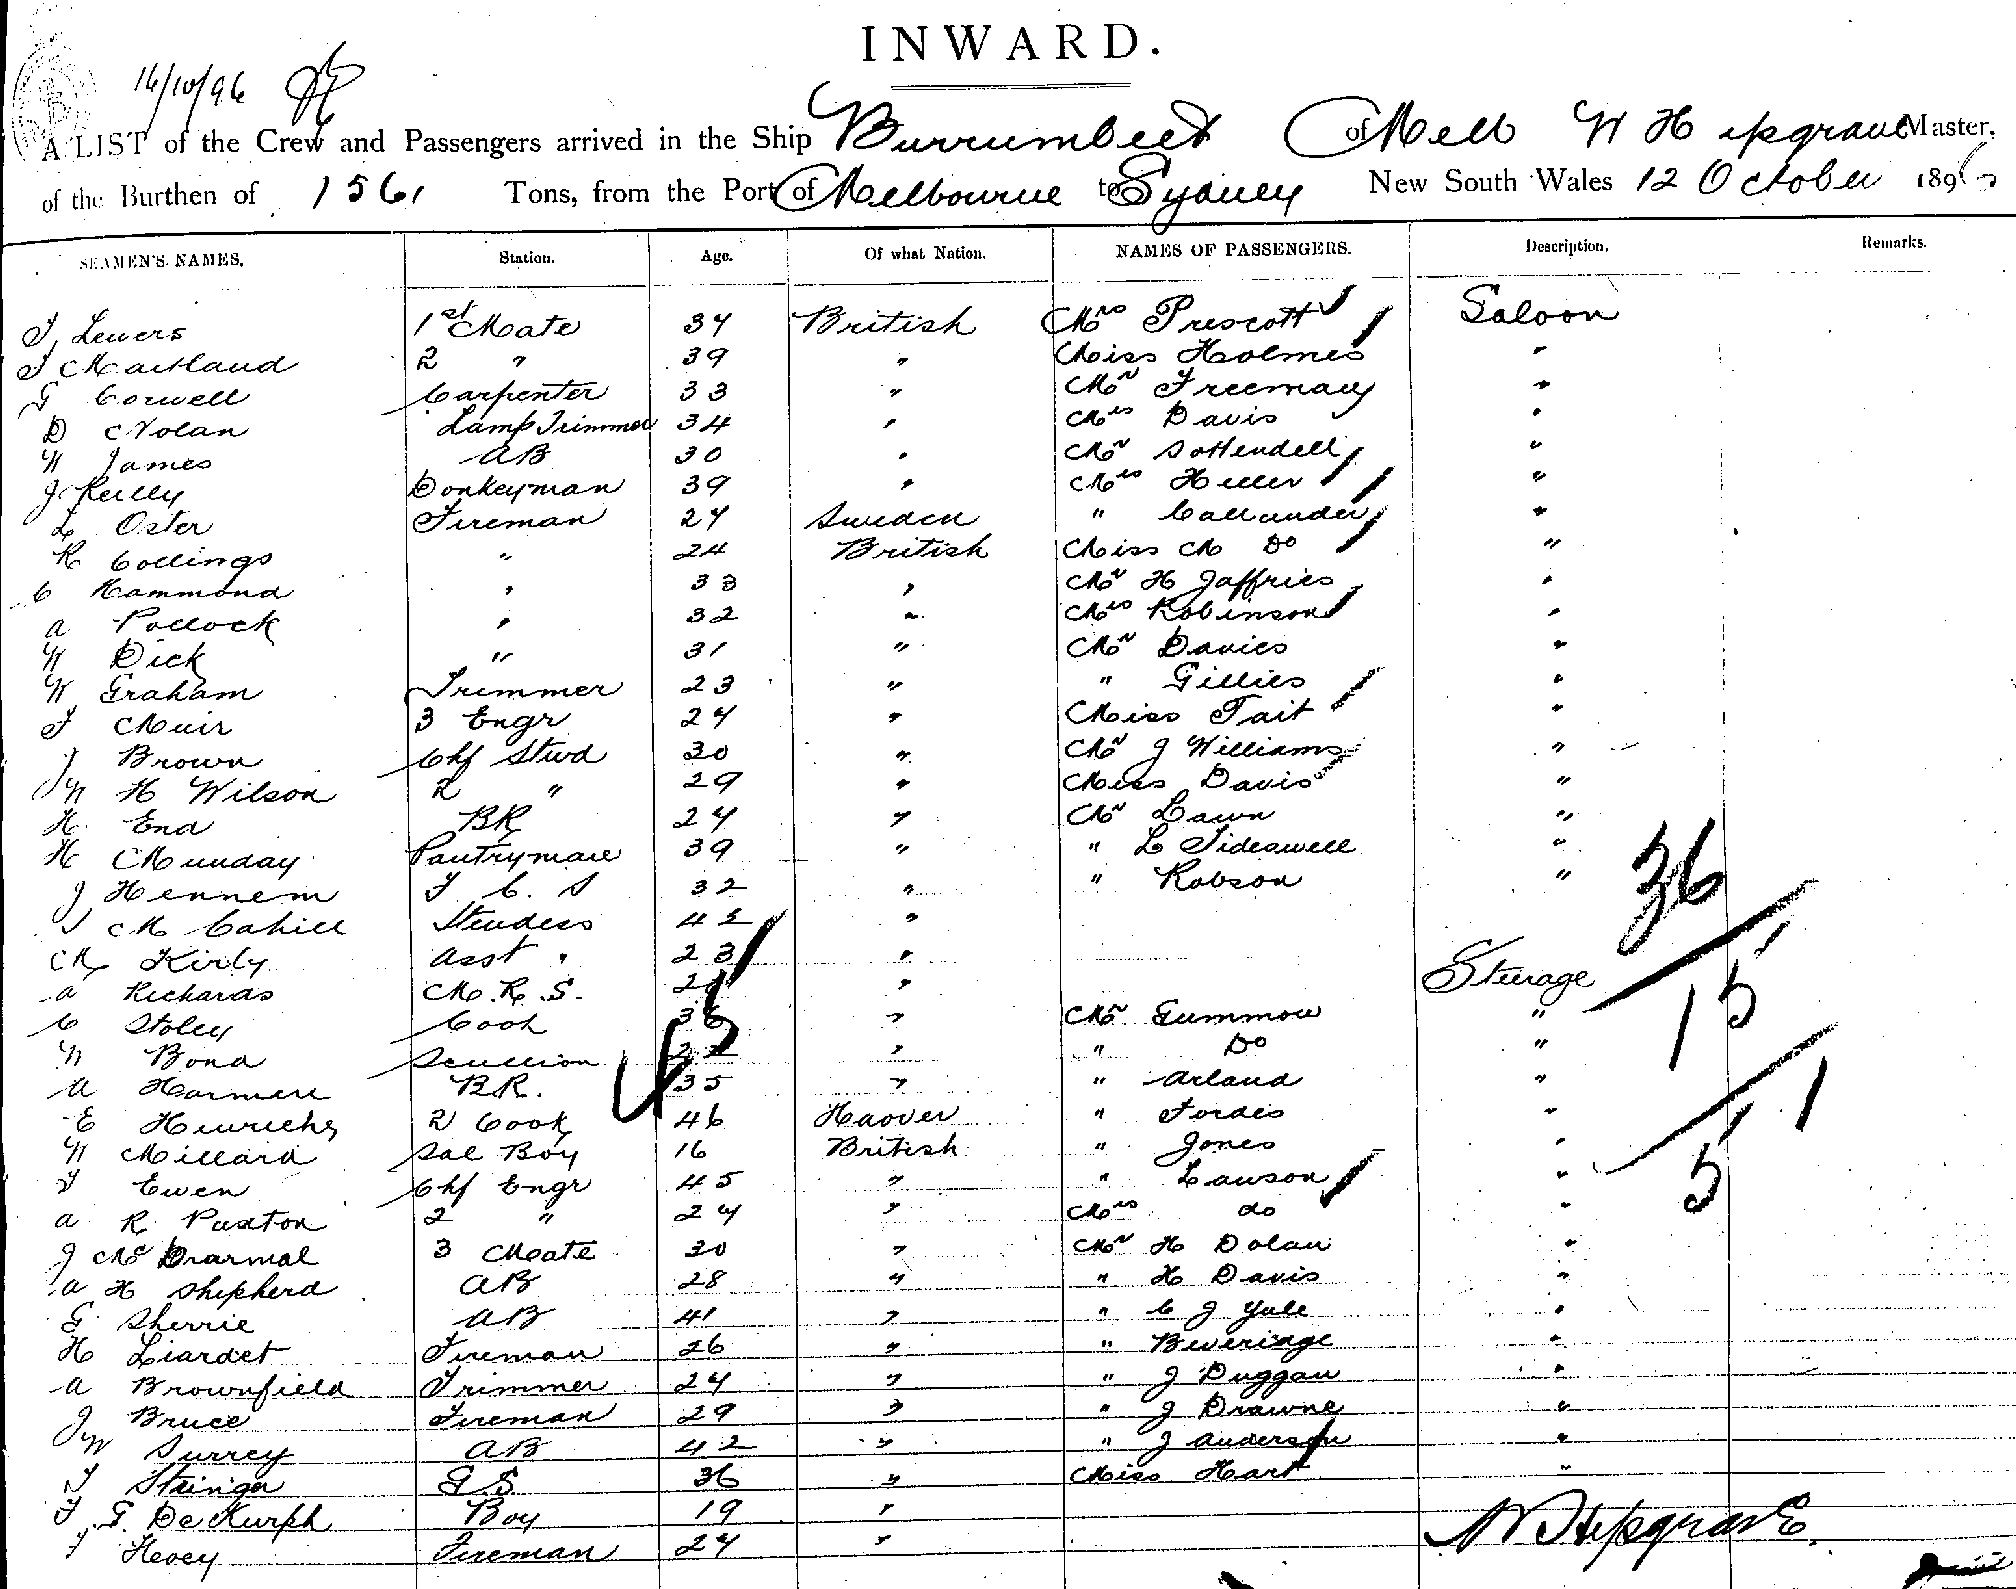 INWARD.
14/10/96
A LIST of the Crew and Passengers arrived in the Ship Burrumbeet of Melb W Hipgrave Master,
of the Burthen of 1561 Tons, from the Port of Melbourne to Sydney New South Wales 12 October 1896
SEAMEN'S NAMES. Station. Age. Of what Nation. NAMES OF PASSENGERS. Description. Remarks.
J Lewers 1st Mate 34 British Mrs Prescott Saloon
J Maitland 2 " 39 " Miss Holmes "
G Corwell Carpenter 33 " Mr Freeman "
D Nolan Lamp Trimmer 34 " Mrs Davis "
W James AB 30 " Mr Sottendell "
J Reilly Donkeyman 39 " Mrs Heller "
L Oster Fireman 24 Sweden " Callander "
R Collings " 24 British Miss M Do "
C Hammond " 33 " Mr H Jaffries "
A Pollock " 32 " Mrs Robinson "
W Dick " 31 " Mr Davies "
W Graham Trimmer 23 " " Gillies "
J Muir 3 Engr 24 " Miss Tait "
J Brown Chf Stwd 30 " Mr J Williams "
W H Wilson 2 " 29 " Miss Davis "
H End BR 24 " Mr Lawn "
H Munday Pantryman 39 " " L Sideswell "
J Hennem F C. S 32 " " Robson " 36
M Cahill Stewdess 45 "
M Kirby Asst " 23 " Sturage
A Richards M.R.S. "
C Stoley Cook 36 " Mr Gummow " 15
W Bond Scullion 22 " " Do "
A Harmer BR. 35 " " Arland "
E Hinrichs 2 Cook 46 Haover " Fordes " 1
W Millard Sal Boy 16 British " Jones "
J Ewen Chf Engr 45 " " Lawson " 5
A R Paxton 2 " 24 " Mrs do "
J Mc Diarmal 3 Mate 30 " Mr H Dolan "
A H Shepherd AB 28 " " H Davis "
G Sherrie AB 41 " " C J Yule "
H Liardet Fireman 26 " " Beveridge "
A Brownfield Trimmer 24 " " J Duggan "
J Bruce Fireman 29 " " J Drawne "
W Surrey AB 42 " " J Anderson "
J Stringer G S 36 " Miss Hart "
F G. De Kurph Boy 19 "
J Hevey Fireman 24 "
W Hipgrave